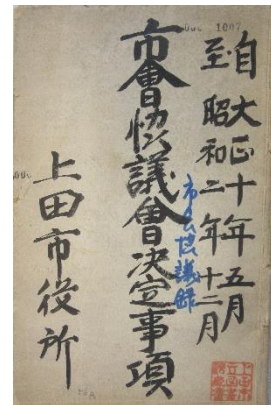 自大正十年五月
至昭和二年十二月
市會協議會決定事項
市会協議録
上田市役所